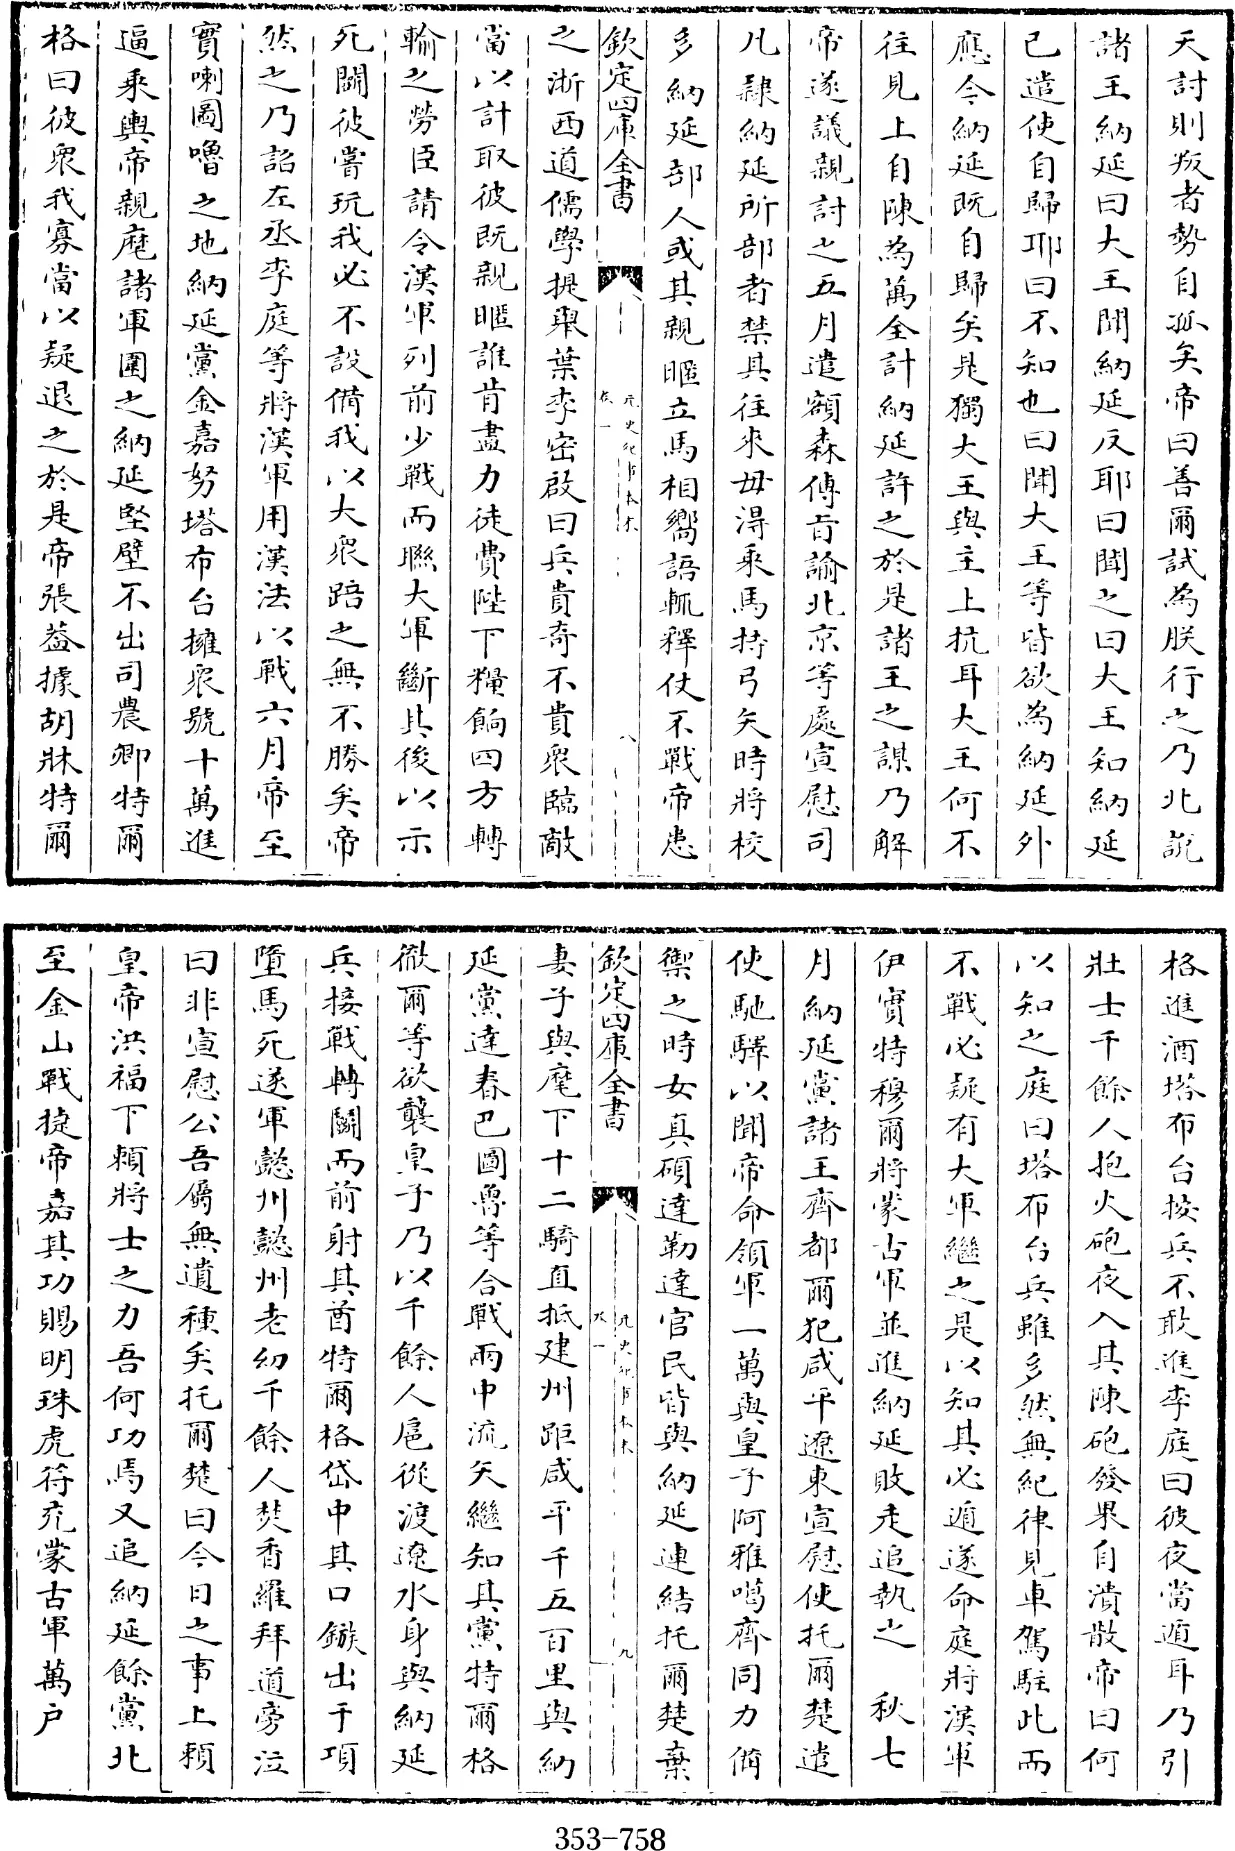 天討則叛者勢自孤矣帝曰善爾試為朕行之乃北說
諸王納延曰大王聞納延反耶曰聞之曰大王知納延
已遣使自歸耶曰不知也曰聞大王等皆欲為納延外
應今納延既自歸矣是獨大王與主上抗耳大王何不
往見上自陳為萬全計納延許之於是諸王之謀乃解
帝遂議親討之五月遣額森傳旨諭北京等處宣慰司
凡隸納延所部者禁其往來毋得乘馬持弓矢時將校
多納延部人或其親暱立馬相嚮語輒釋仗不戰帝患
欽定四庫全書
元史紀事本末
卷一
八
之浙西道儒學提舉葉李密啟曰兵貴奇不貴衆臨敵
當以計取彼既親暱誰肯盡力徒費陛下糧餉四方轉
輸之勞臣請令漢軍列前少戰而聯大軍斷其後以示
死鬬彼嘗玩我必不設備我以大衆踣之無不勝矣帝
然之乃詔左丞李庭等將漢軍用漢法以戰六月帝至
實喇圖嚕之地納延黨金嘉努塔布台擁衆號十萬進
逼乘輿帝親麾諸軍圍之納延堅壁不出司農卿特爾
格曰彼衆我寡當以疑退之於是帝張葢據胡牀特爾
格進酒塔布台按兵不敢進李庭曰彼夜當遁耳乃引
壯士千餘人抱火砲夜入其陳砲發果自潰散帝曰何
以知之庭曰塔布台兵雖多然無紀律見車駕駐此而
不戰必疑有大軍繼之是以知其必遁遂命庭將漢軍
伊實特穆爾將蒙古軍並進納延敗走追執之 秋七
月納延黨諸王齊都爾犯咸平遼東宣慰使托爾楚遣
使馳驛以聞帝命領軍一萬與皇子阿雅噶齊同力備
禦之時女真碩達勒達官民皆與納延連結托爾楚棄
欽定四庫全書
元史紀事本末
卷一
九
妻子與麾下十二騎直抵建州距咸平千五百里與納
延黨達春巴圖魯等合戰兩中流矢繼知其黨特爾格
徹爾等欲襲皇子乃以千餘人扈從渡遼水身與納延
兵接戰轉鬬而前射其酋特爾格岱中其口鏃出于項
墮馬死遂軍懿州懿州老幼千餘人焚香羅拜道旁泣
曰非宣慰公吾屬無遺種矣托爾楚曰今日之事上賴
皇帝洪福下賴將士之力吾何功焉又追納延餘黨北
至金山戰捷帝嘉其功賜明珠虎符充蒙古軍萬戶
353-758